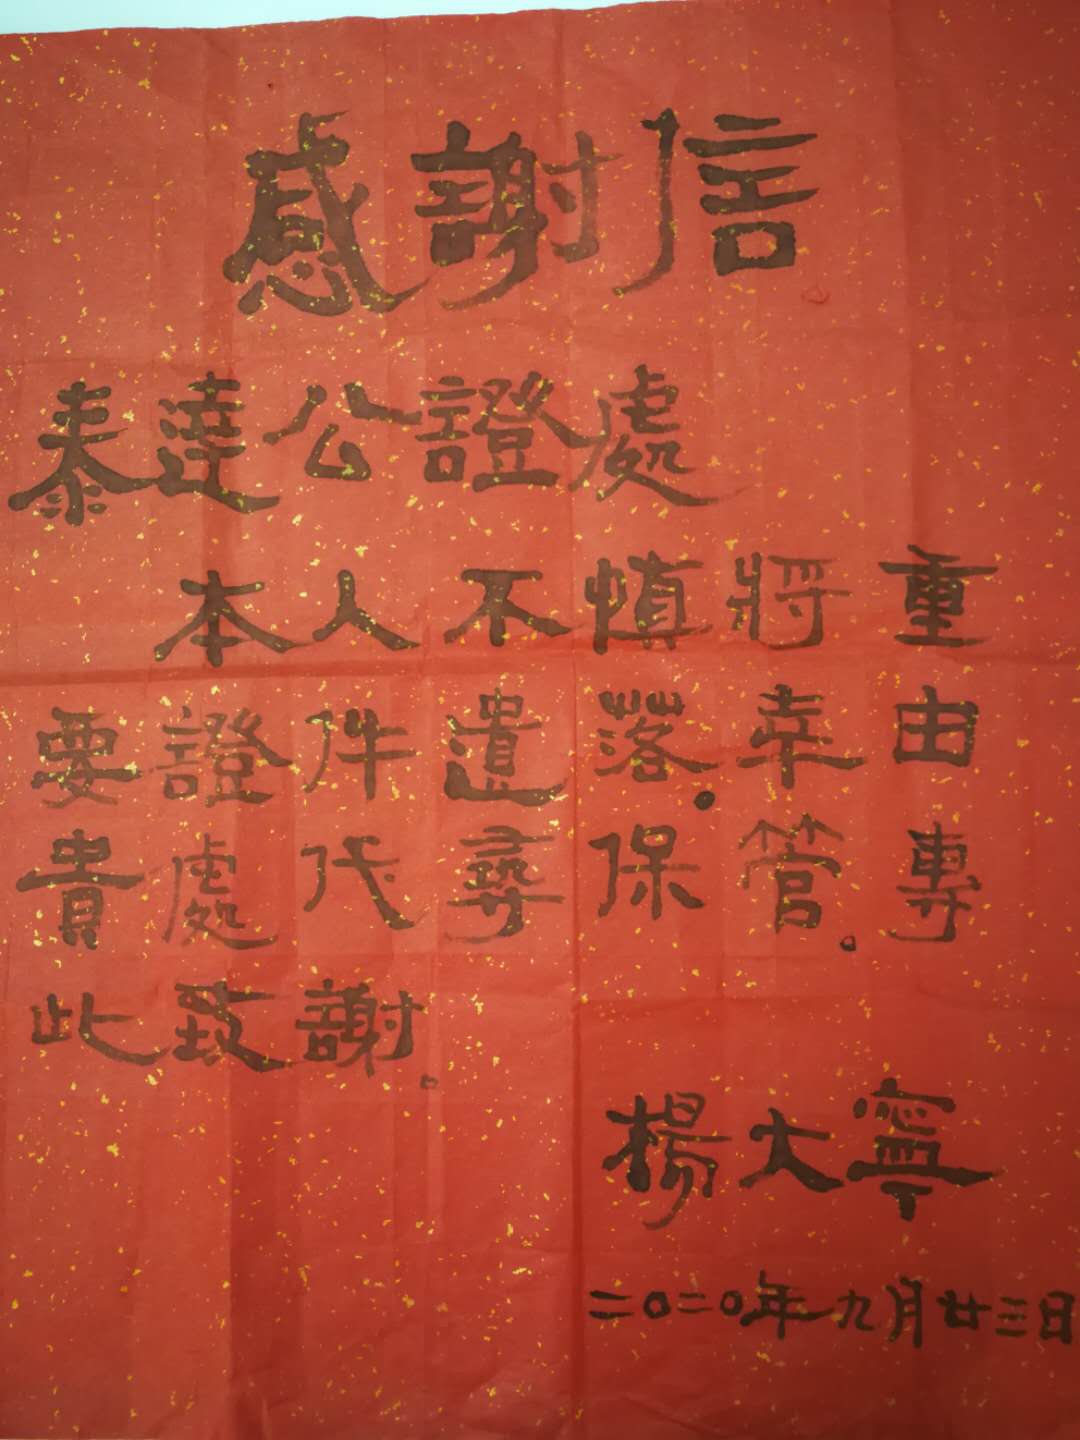 感謝信
泰達公證處
本人不慎將重
要證件遺落.幸由
貴處代尋保管。專
此致謝。
楊大寧
二〇二〇年九月廿三日